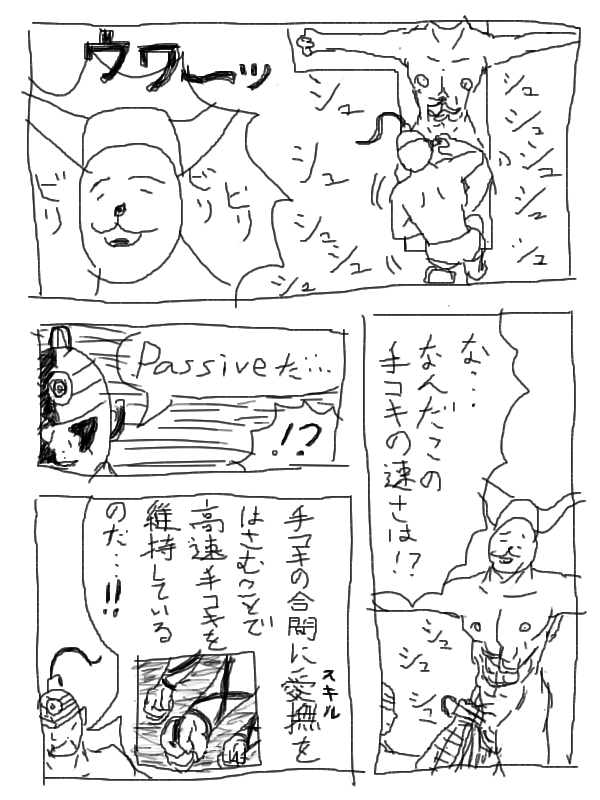 ウワーッ
シュ
シュ
シュ
シュ
シュ
シュ
シュ
シュ
シュ
シュ
ビリ
ビリ
ビリ
な…
なんだこの
手コキの速さは!?
シュ
シュ
シュ
Passiveだ…
!?
手コキの合間に愛撫を
スキル
はさむことで
高速手コキを
維持している
のだ…!!